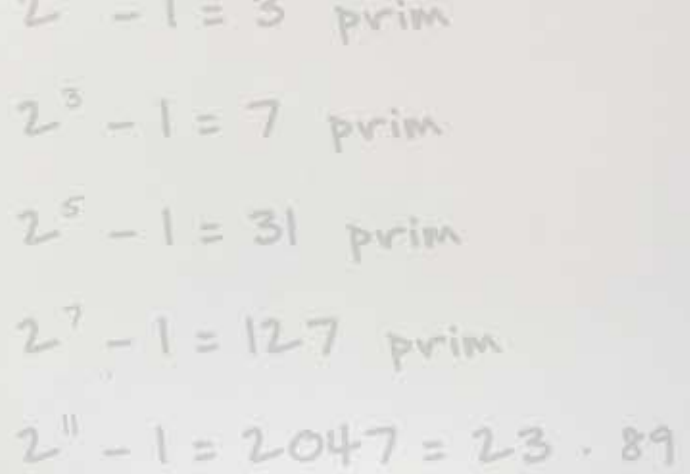 2 - 1 = 3 prim
2³ - 1 = 7 prim
2⁵ - 1 = 31 prim
2⁷ - 1 = 127 prim
2¹¹ - 1 = 2047 = 23 · 89